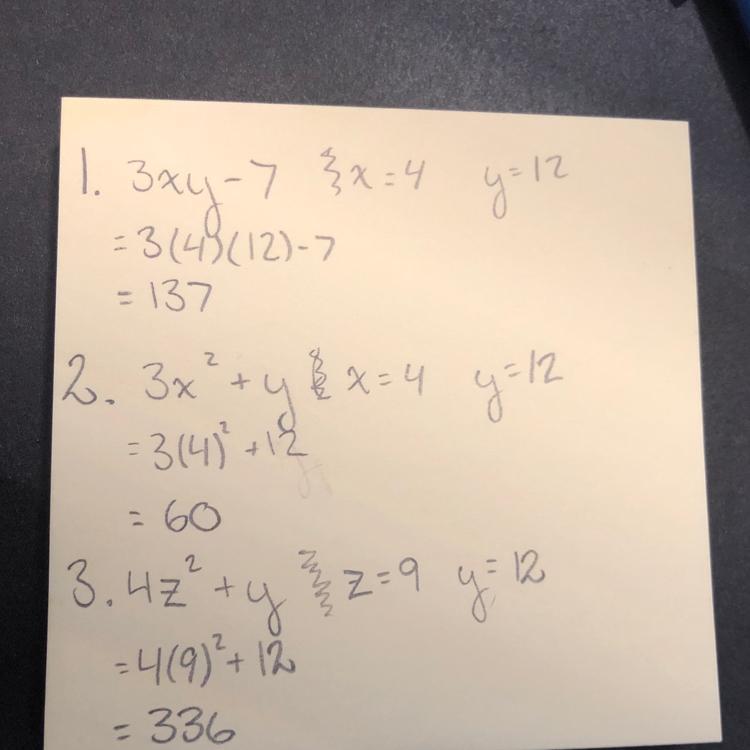 1. 3xy-7 x=4 y=12
=3(4)(12)-7
=137
2. 3x²+y x=4 y=12
=3(4)²+12
=60
3. 4z²+y z=9 y=12
=4(9)²+12
=336